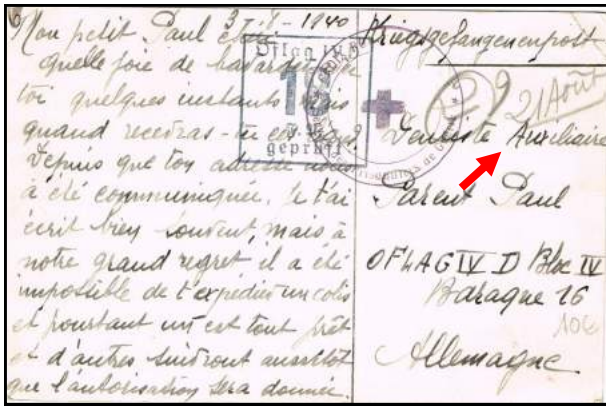 Mon petit Paul chéri 3-8-1940
quelle joie de bavarder
toi quelques instants mais
quand recevras-tu
Depuis que ton adresse nous
a été communiquée, je t'ai
écrit bien souvent, mais à
notre grand regret il a été
impossible de t'expédier un colis
et pourtant un est tout prêt
et d'autres suivront aussitôt
que l'autorisation sera donnée.
Oflag IV
geprüft
Kriegsgefangenenpost
21 Août
Dentiste Auxiliaire
Parent Paul
OFLAG IV D Bloc IV
Baraque 16
10€
Allemagne